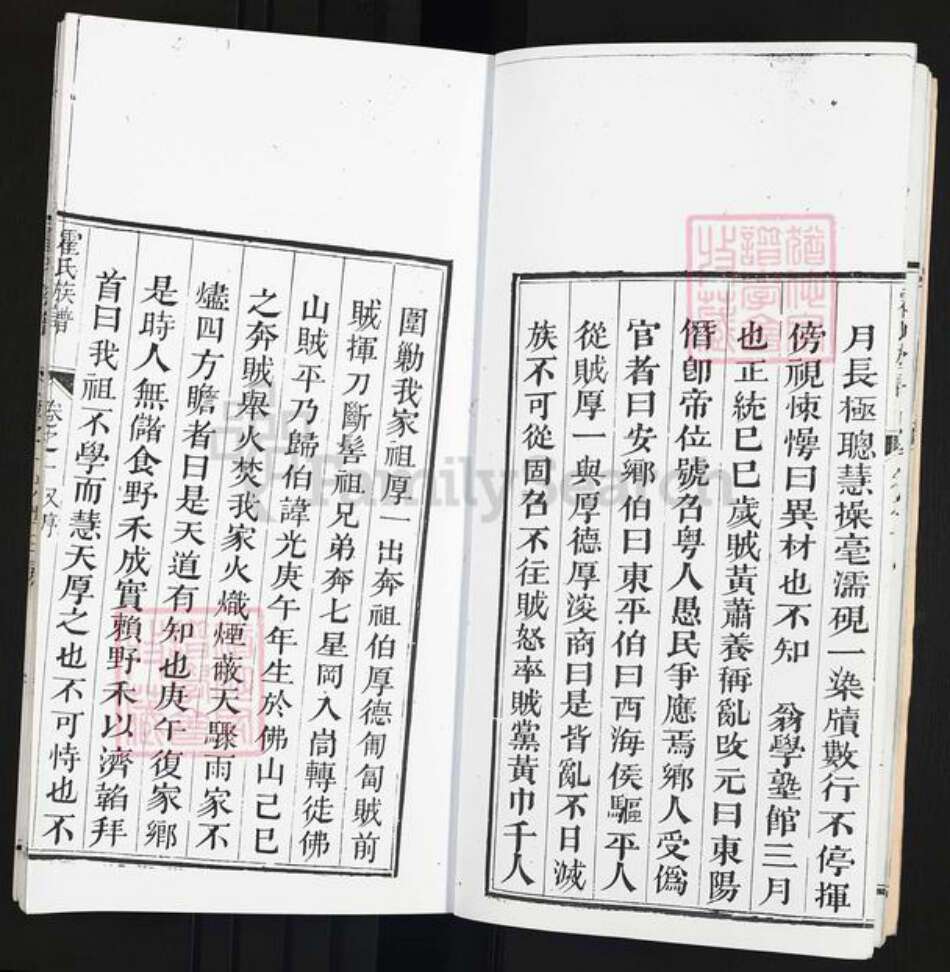 月長極聰慧操毫濡硯一染牘數行不停揮
傍視悚愕曰異材也不知　翁學塾館三月
也正統巳巳歲賊黃蕭養稱亂改元曰東陽
僭卽帝位號召粤人愚民爭應焉鄉人受僞
官者曰安鄉伯曰東平伯曰西海侯驅平人
從賊厚一與厚德厚浚商曰是皆亂不日滅
族不可從固召不往賊怒率賊黨黃巾千人
圍勦我家祖厚一出奔祖伯厚德匍匐賊前
賊揮刀斷髻祖兄弟奔七星岡入峝轉徙佛
山賊平乃歸伯諱光庚午年生於佛山己巳
之奔賊舉火焚我家火熾煙蔽天驟雨家不
燼四方瞻者曰是天道有知也庚午復家鄉
是時人無儲食野禾成實賴野禾以濟韜拜
首曰我祖不學而慧天厚之也不可恃也不
霍氏族譜
卷之一　又序
FamilySearch